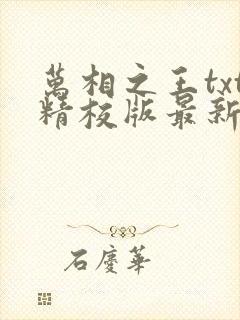 萬相之王txt
精校版最新
石慶華